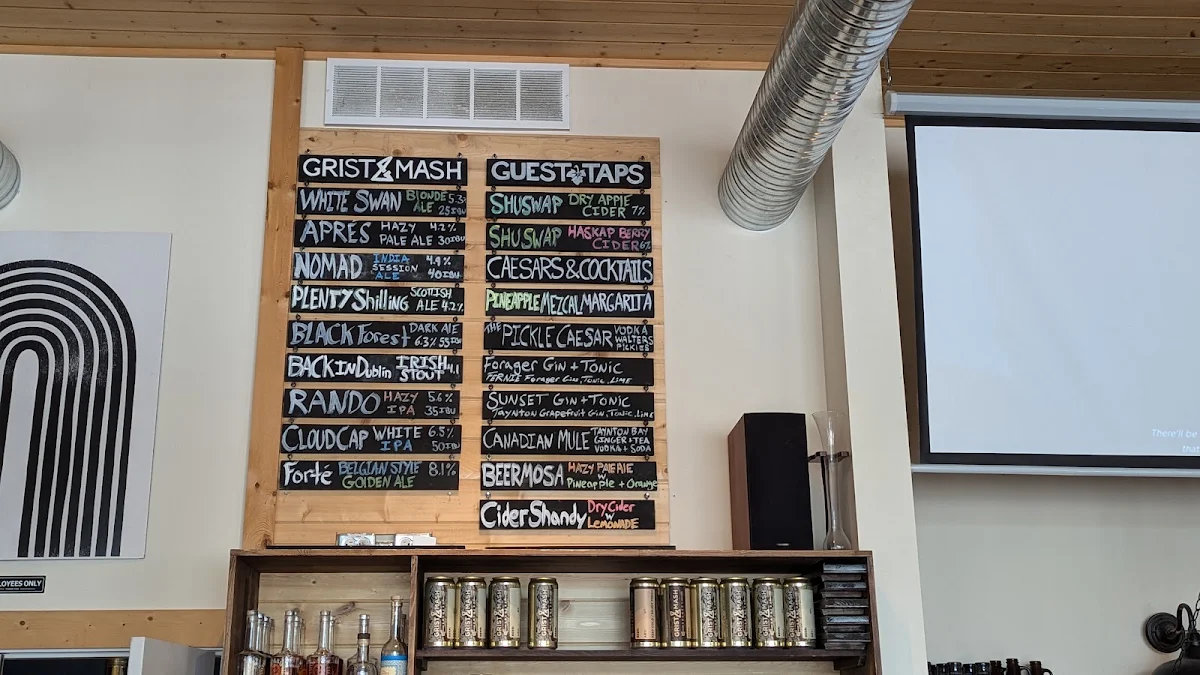 GRIST & MASH
WHITE SWAN BLONDE 5.3
ALE 25 IBU
APRES HAZY 4.2%
PALE ALE 30 IBU
NOMAD INDIA SESSION ALE 4.9% 40 IBU
PLENTY Shilling SCOTTISH
ALE 4.2%
BLACK Forest DARK ALE
6.3% 55 IBU
BACK IN Dublin IRISH STOUT 4.1
RANDO HAZY 5.6%
IPA 35 IBU
CLOUDCAP WHITE 6.5%
IPA 50 IBU
Forté BELGIAN STYLE GOLDEN ALE 8.1%
GUEST TAPS
SHUSWAP DRY APPLE
CIDER 7%
SHUSWAP HASKAP BERRY
CIDER 6%
CAESARS & COCKTAILS
PINEAPPLE MEZCAL MARGARITA
THE PICKLE CAESAR VODKA WALTERS PICKLES
Forager Gin + Tonic
FERNIE Forager Gin, Tonic, Lime
SUNSET Gin + TONIC
TAYNTON Grapefruit Gin, Tonic, Lime
CANADIAN MULE TAYNTON BAY GINGER + TEA VODKA + SODA
BEERMOSA HAZY PALE ALE
w Pineapple + Orange
Cider Shandy Dry Cider
w LEMONADE
There'll be
that
LOYEES ONLY
GRIST & MASH
GRIST & MASH
GRIST & MASH
GRIST & MASH
GRIST & MASH